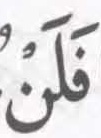 فَلَنْ